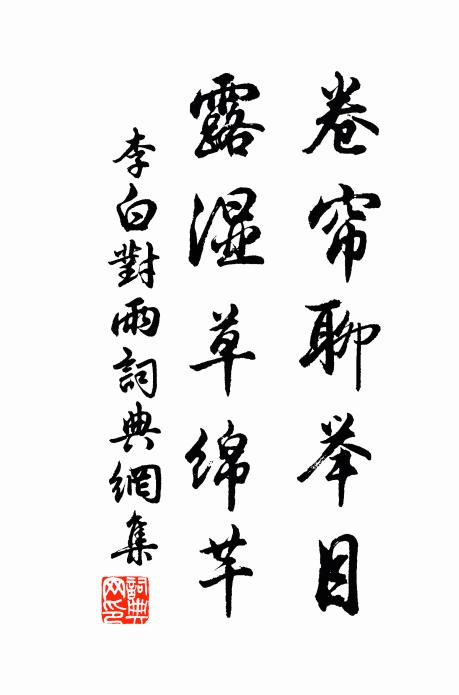 卷帘聊举目
露湿草绵芊
李白對雨詞典網集
詞典
网印